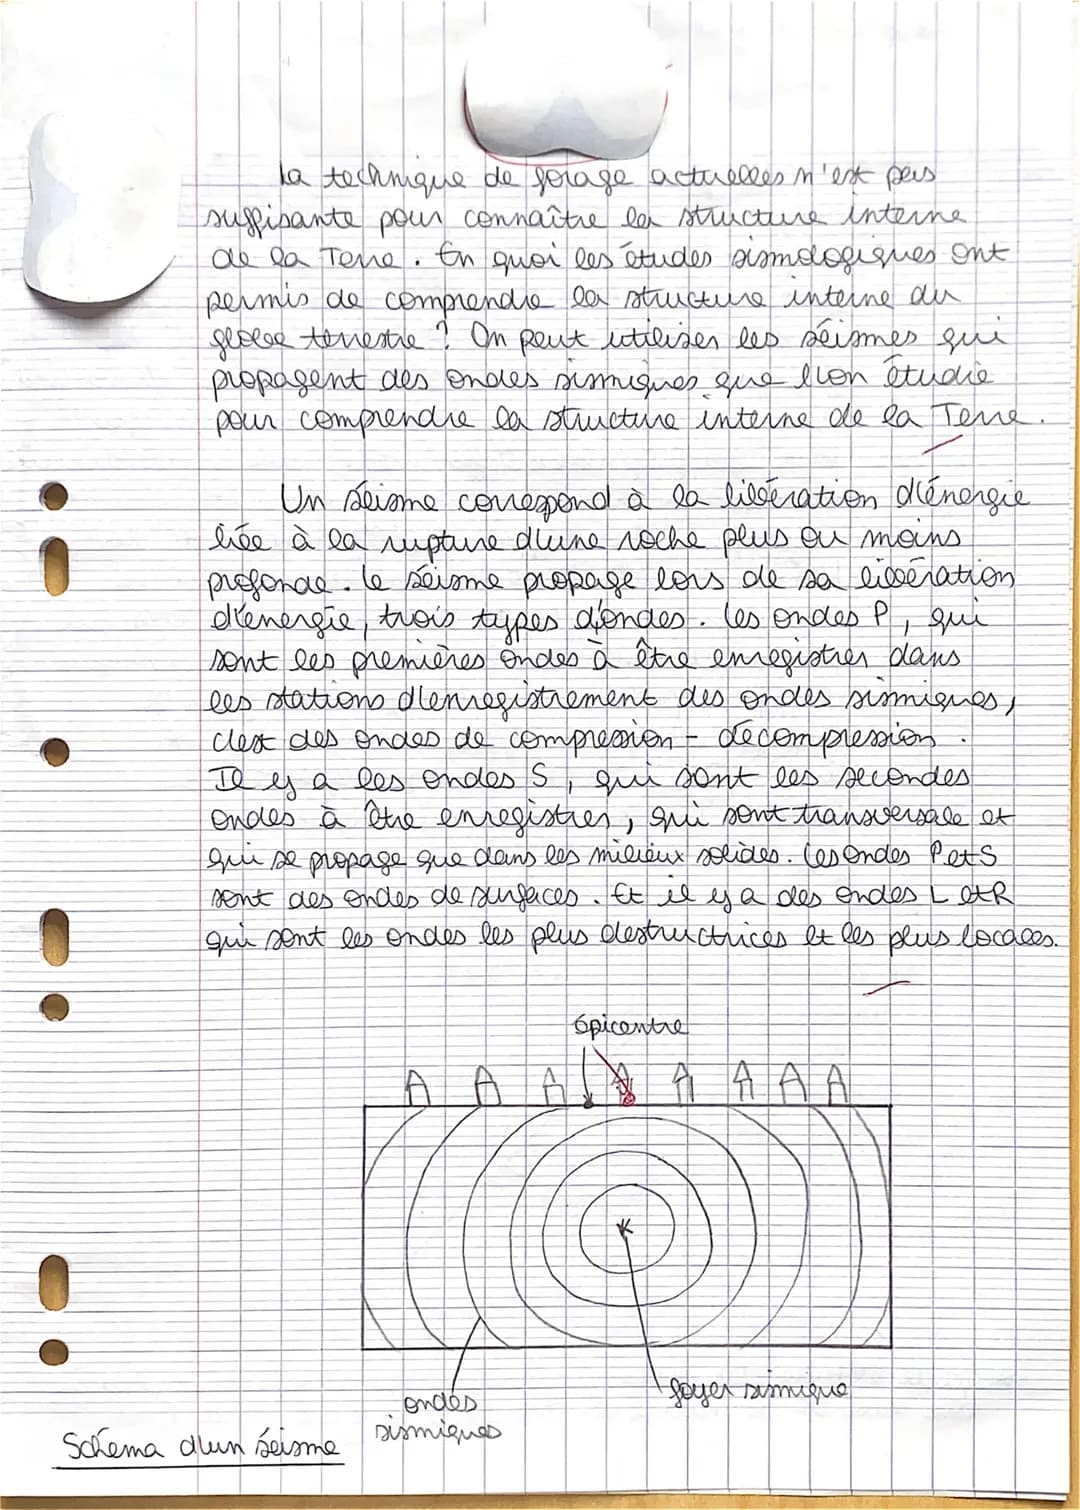 La technique de forage actuelles n'est pas
suffisante pour connaître la structure interne
de la Terre. En quoi les études sismologiques ont
permis de comprendre la structure interne du
globe terrestre ? On peut utiliser les séismes qui
propagent des ondes sismiques que l'on étudie
pour comprendre la structure interne de la Terre.
Un séisme correspond à la libération d'énergie
liée à la rupture d'une roche plus ou moins
profonde. Le séisme propage lors de sa libération
d'énergie, trois types d'ondes. Les ondes P, qui
sont les premières ondes à être enregistrer dans
les stations d'enregistrement des ondes sismiques,
c'est des ondes de compression - décompression.
Il y a les ondes S, qui sont les secondes
ondes à être enregistrer, qui sont transversale et
qui se propage que dans les milieux solides. Les Ondes P et S
sont des ondes de surfaces. Et il y a des ondes L et R
qui sont les ondes les plus destructrices et les plus locales.
épicentre
foyer sismique
ondes
sismiques
Schéma d'un séisme